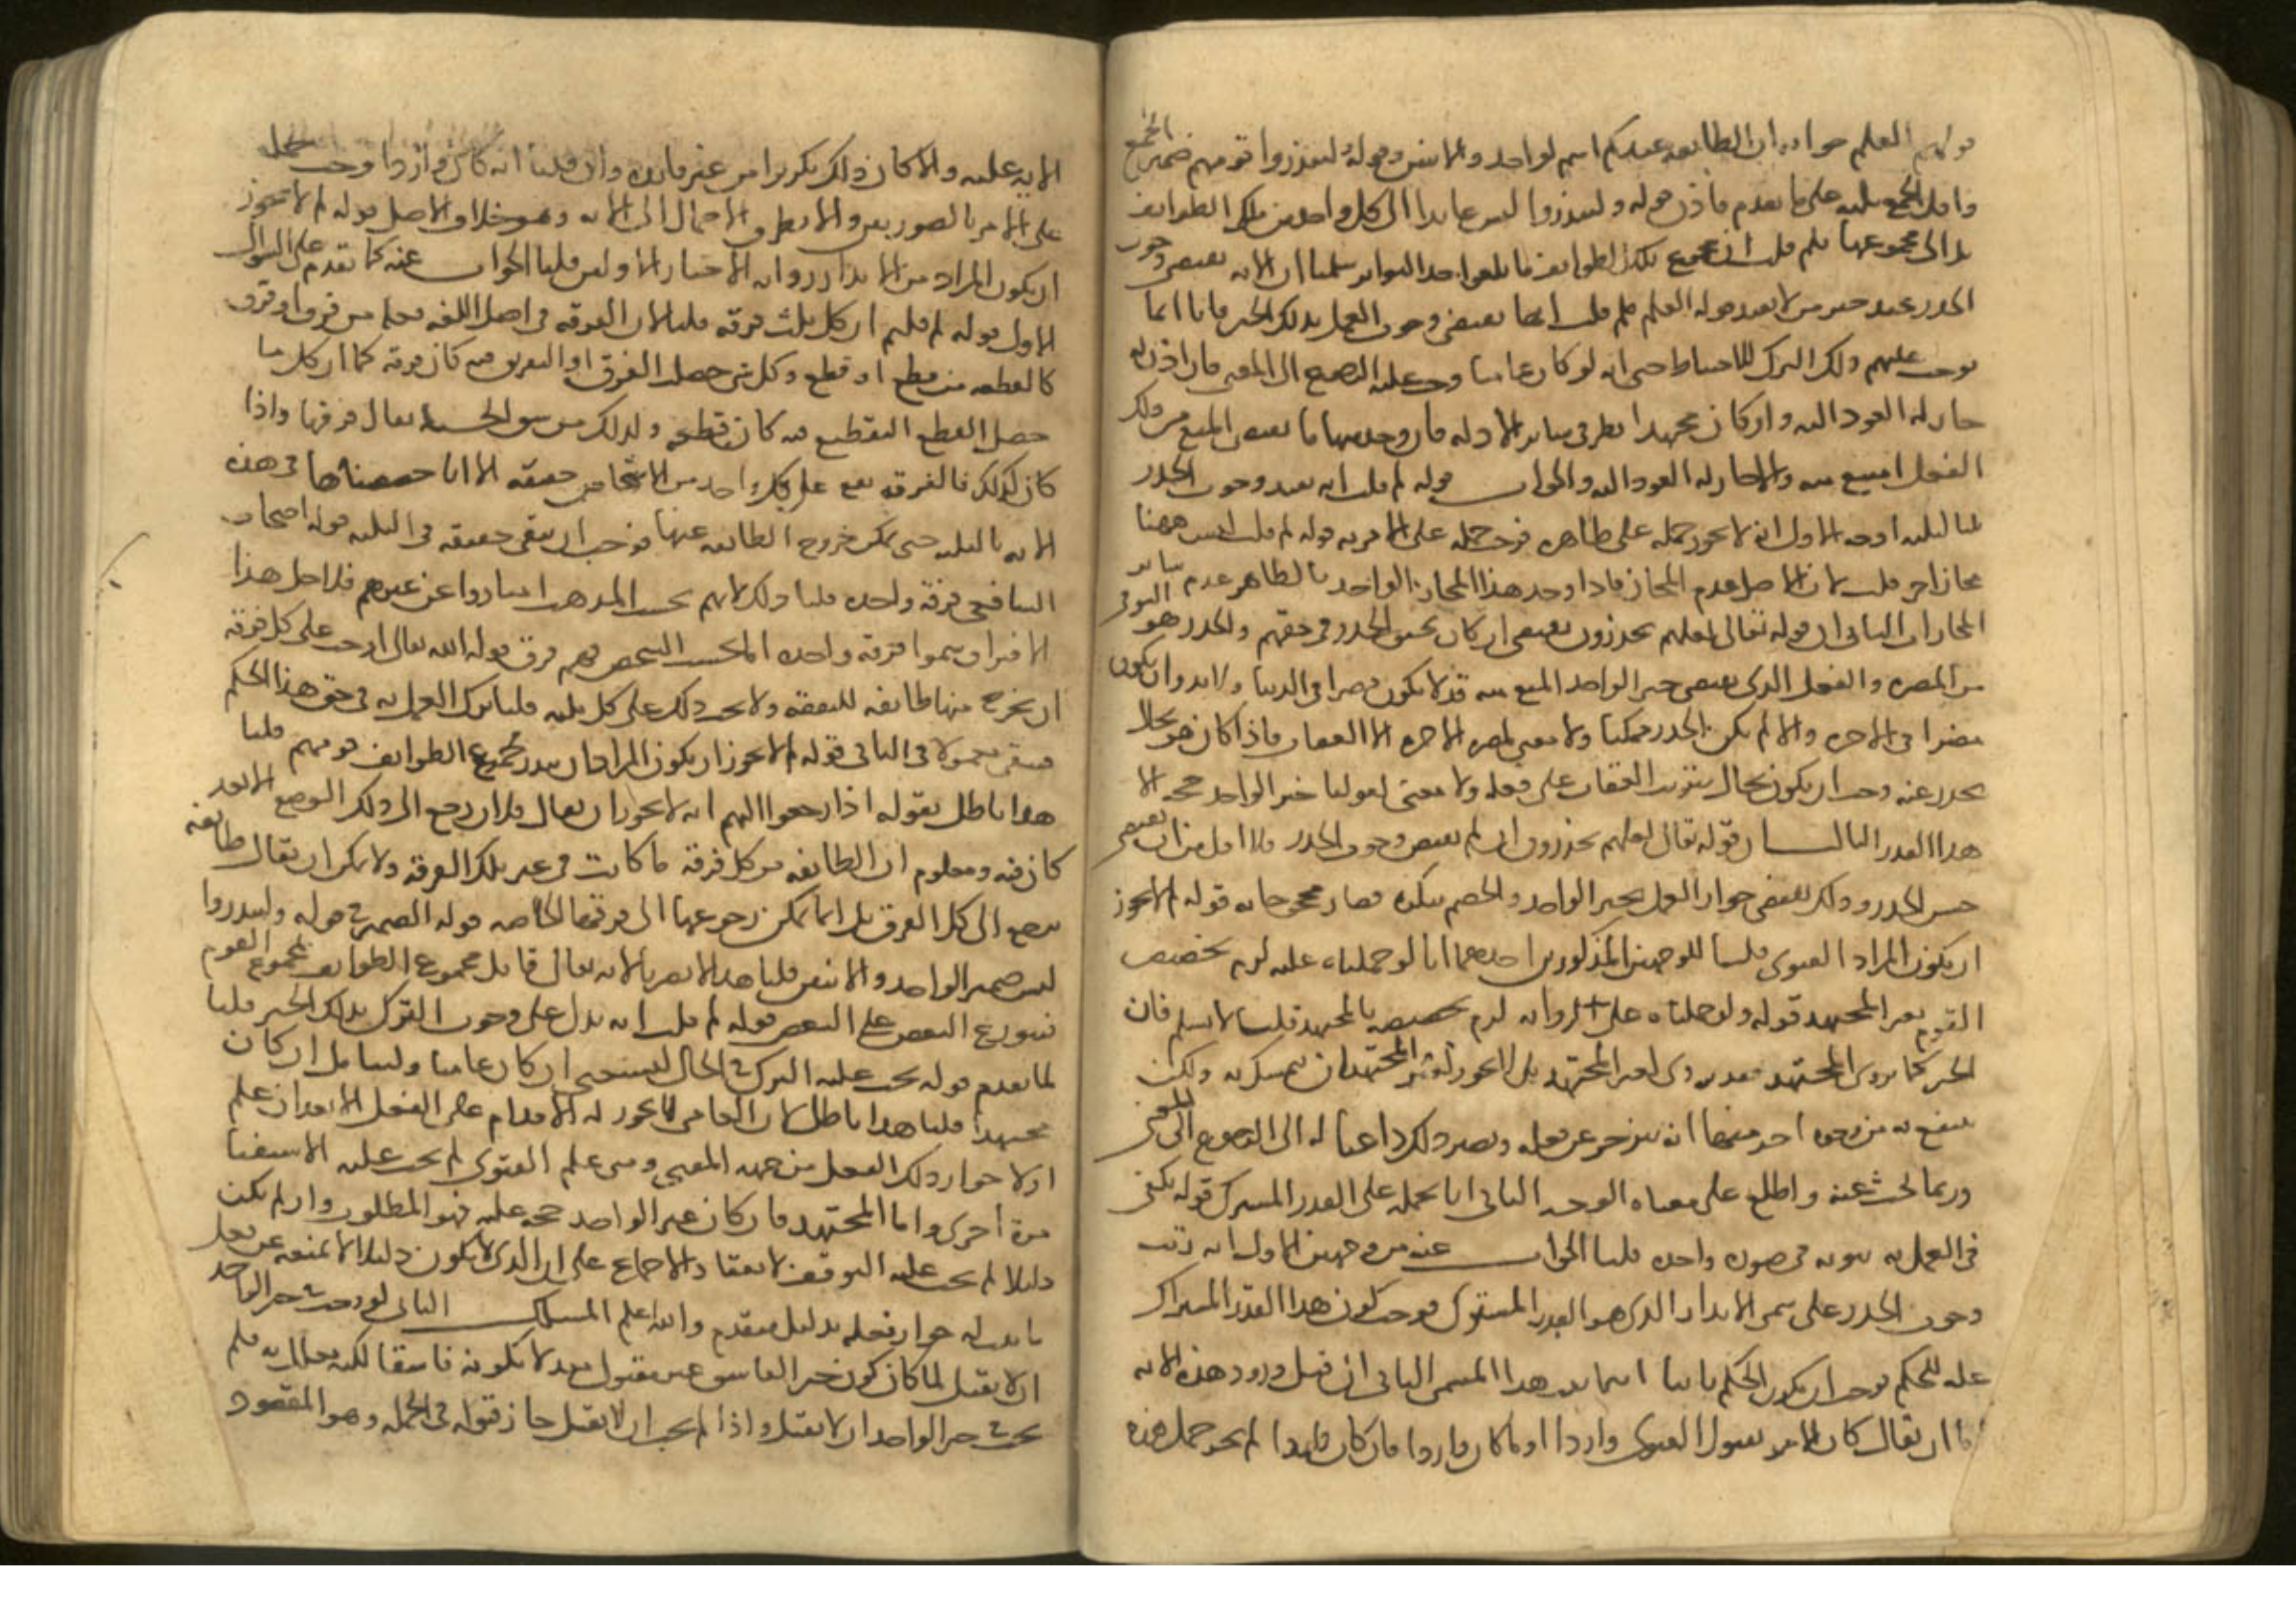 قولهم العلم جوابه ان الطائفه عندكم اسم لواحد والاثنين وقوله لينذروا قومهم ضمير الجمع
واقل الجمع ثلثه على ما تقدم فاذن قوله ولينذروا ليس عايدا الى كل واحد من تلك الطوايف
بل الى مجموعها فلم قلت ان مجموع تلك الطوايف ما بلغوا حد التواتر سلمنا ان الايه تقتضى وجوب
الحذر عند خبر من لا يفيد قوله العلم فلم قلت انها تقتضى وجوب العمل بذلك الخبر فانا انما
نوجب عليهم ذلك الترك للاحتياط حتى انه لو كان عاميا وجب عليه الرجوع الى المفتى فان اذن له
جاز له العود اليه وان كان مجتهدا نظر فى ساير الادله فان وجد فيها ما يقتضى المنع من ذلك
الفعل امتنع منه والا جاز له العود اليه والجواب قوله لم قلت انه يفيد وجوب الحذر
قلنا لثلثه اوجه الاول انه لا يجوز حمله على ظاهره فوجب حمله على الامر به قوله لم قلت ليس ههنا
مجاز اخر قلت لان الاصل عدم المجاز فاذا وجد هذا المجاز الواحد فالظاهر عدم ساير
المجازات الثانى ان قوله تعالى لعلهم يحذرون يقتضى امكان تحقق الحذر فى حقهم والحذر هو التوقى
من المضره والفعل الذى يقتضى خبر الواحد المنع منه قد لا يكون مضرا فى الدنيا ولا بد وان يكون
مضرا فى الاخره والا لم يكن الحذر ممكنا ولا معنى لمضره الاخره الا العقاب فاذا كان هو بحال
يحذر عنه وجب ان يكون بحال يترتب العقاب على فعله ولا معنى لقولنا خبر الواحد حجه الا
هذا القدر الثالث ان قوله تعالى لعلهم يحذرون ان لم يقتض وجوب الحذر فلا اقل من ان يقتضى
حسن الحذر وذلك يقتضى جواز العمل بخبر الواحد والخصم ينكره فصار محجوجا به قوله لم لا يجوز
ان يكون المراد الفتوى قلنا للوجهين المذكورين احدهما انا لو حملناه عليه لزم تخصيص
القوم بغير المجتهد قوله ولو حملناه على الروايه لزم تخصيصه بالمجتهد قلنا لا نسلم فان
الخبر كما يروى للمجتهد فقد يروى لغير المجتهد بل لا يجوز لغير المجتهد ان يتمسك به ولكن
ينتفع به من وجوه اخر منها انه ينزجر عن فعله ويصير ذلك داعيا له الى الرجوع الى المفتى
وربما بحث عنه واطلع على معناه الوجه الثانى انا نحمله على القدر المشترك قوله يكفى
فى العمل به ثبوته فى صوره واحده قلنا الجواب عنه من وجهين الاول انه رتب
وجوب الحذر على مسمى الانذار الذى هو القدر المشترك فوجب كون هذا القدر المشترك
عله للحكم فوجب ان يكون الحكم ثابتا اينما ثبت هذا المسمى الثانى ان قبل ورود هذه الايه
اما ان يقال كان الامر بقبول الفتوى واردا او ما كان واردا فان كان واردا لم يجز حمل هذه
الايه عليه والا كان ذلك تكريرا من غير فايده وان قلنا انه ما كان واردا وجب حمل
على الامر بالصورتين والا يتطرق الاجمال الى الايه وهو خلاف الاصل قوله لم لا يجوز
ان يكون المراد من الانذار روايه الاخبار الاولين قلنا الجواب عنه كما تقدم على السؤال
الاول قوله لم قلتم ان كل ثلثه فرقه قلنا لان الفرقه فى اصل اللغه فعله من فرق او فرق
كالقطعه من قطع او قطع وكل شى حصلت الفرق او التفريق فيه كان فرقه كما ان كل ما
حصل القطع التقطيع فيه كان قطعه ولذلك من شق الخشبه يقال فرقها واذا
كان كذلك فالفرقه تقع على كل واحد من الاشخاص حقيقه الا انا خصصناها فى هذه
الايه بالثلثه حتى يمكن خروج الطائفه عنها فوجب ان يبقى حقيقه فى الثلثه قوله اصحاب
الشافعى فرقه واحده قلنا ذلك لانهم بحسب المذهب امتازوا عن غيرهم فلاجل هذا
الافتراق سموا فرقه واحده اما بحسب الشخص فهم فرق قوله الله تعالى اوجب على كل فرقه
ان يخرج منها طائفه للتفقه ولا يجب ذلك على كل ثلثه قلنا ترك العمل به فى حق هذا الحكم
فيبقى معمولا فى الباقى قوله لم لا يجوز ان يكون المراد ان ينذر مجموع الطوايف قومهم قلنا
هذا باطل بقوله اذا رجعوا اليهم انه لا يجوز ان يقال فلان رجع الى ذلك الموضع الا بعد
كان فيه ومعلوم ان الطائفه من كل فرقه ما كانت فى غير تلك الفرقه ولا يمكن ان يقال طائفه
ترجع الى كل الفرق بل انما يمكن رجوعها الى فرقتها الخاصه قوله الضمير فى قوله ولينذروا
ليس ضمير الواحد والاثنين قلنا هذا لا يضر بالايه تعالى قابل مجموع الطوايف بمجموع القوم
فيتوزع البعض على البعض قوله لم قلت انه يدل على وجوب الترك بذلك الخبر قلنا
لما تقدم قوله يجب عليه الترك فى الحال ليستفتى ان كان عاميا وليتامل ان كان
مجتهدا قلنا هذا باطل لان العامى لا يجوز له الاقدام على الفعل الا بعد ان علم
اولا جواز ذلك الفعل من جهه المفتى ومتى علم الفتوى لم يجب عليه الاستفتا
مرة أخرى واما المجتهد فان كان خبر الواحد حجه عليه فهو المطلوب وان لم يكن
دليلا لم يجب عليه التوقف لانعقاد الاجماع على ان الذى لا يكون دليلا لا يمنعه عن فعل
ما ثبت له جواز فعله بدليل متقدم والله اعلم المسلك الثانى لو وجب فى خبر الواحد
ان لا يقبل لما كان كون خبر الفاسق غير مقبول معللا بكونه فاسقا لكنه معلل به فلم
يجب فى خبر الواحد ان لا يقبل واذا لم يجب ان لا يقبل جاز قبوله فى الجمله وهو المقصود